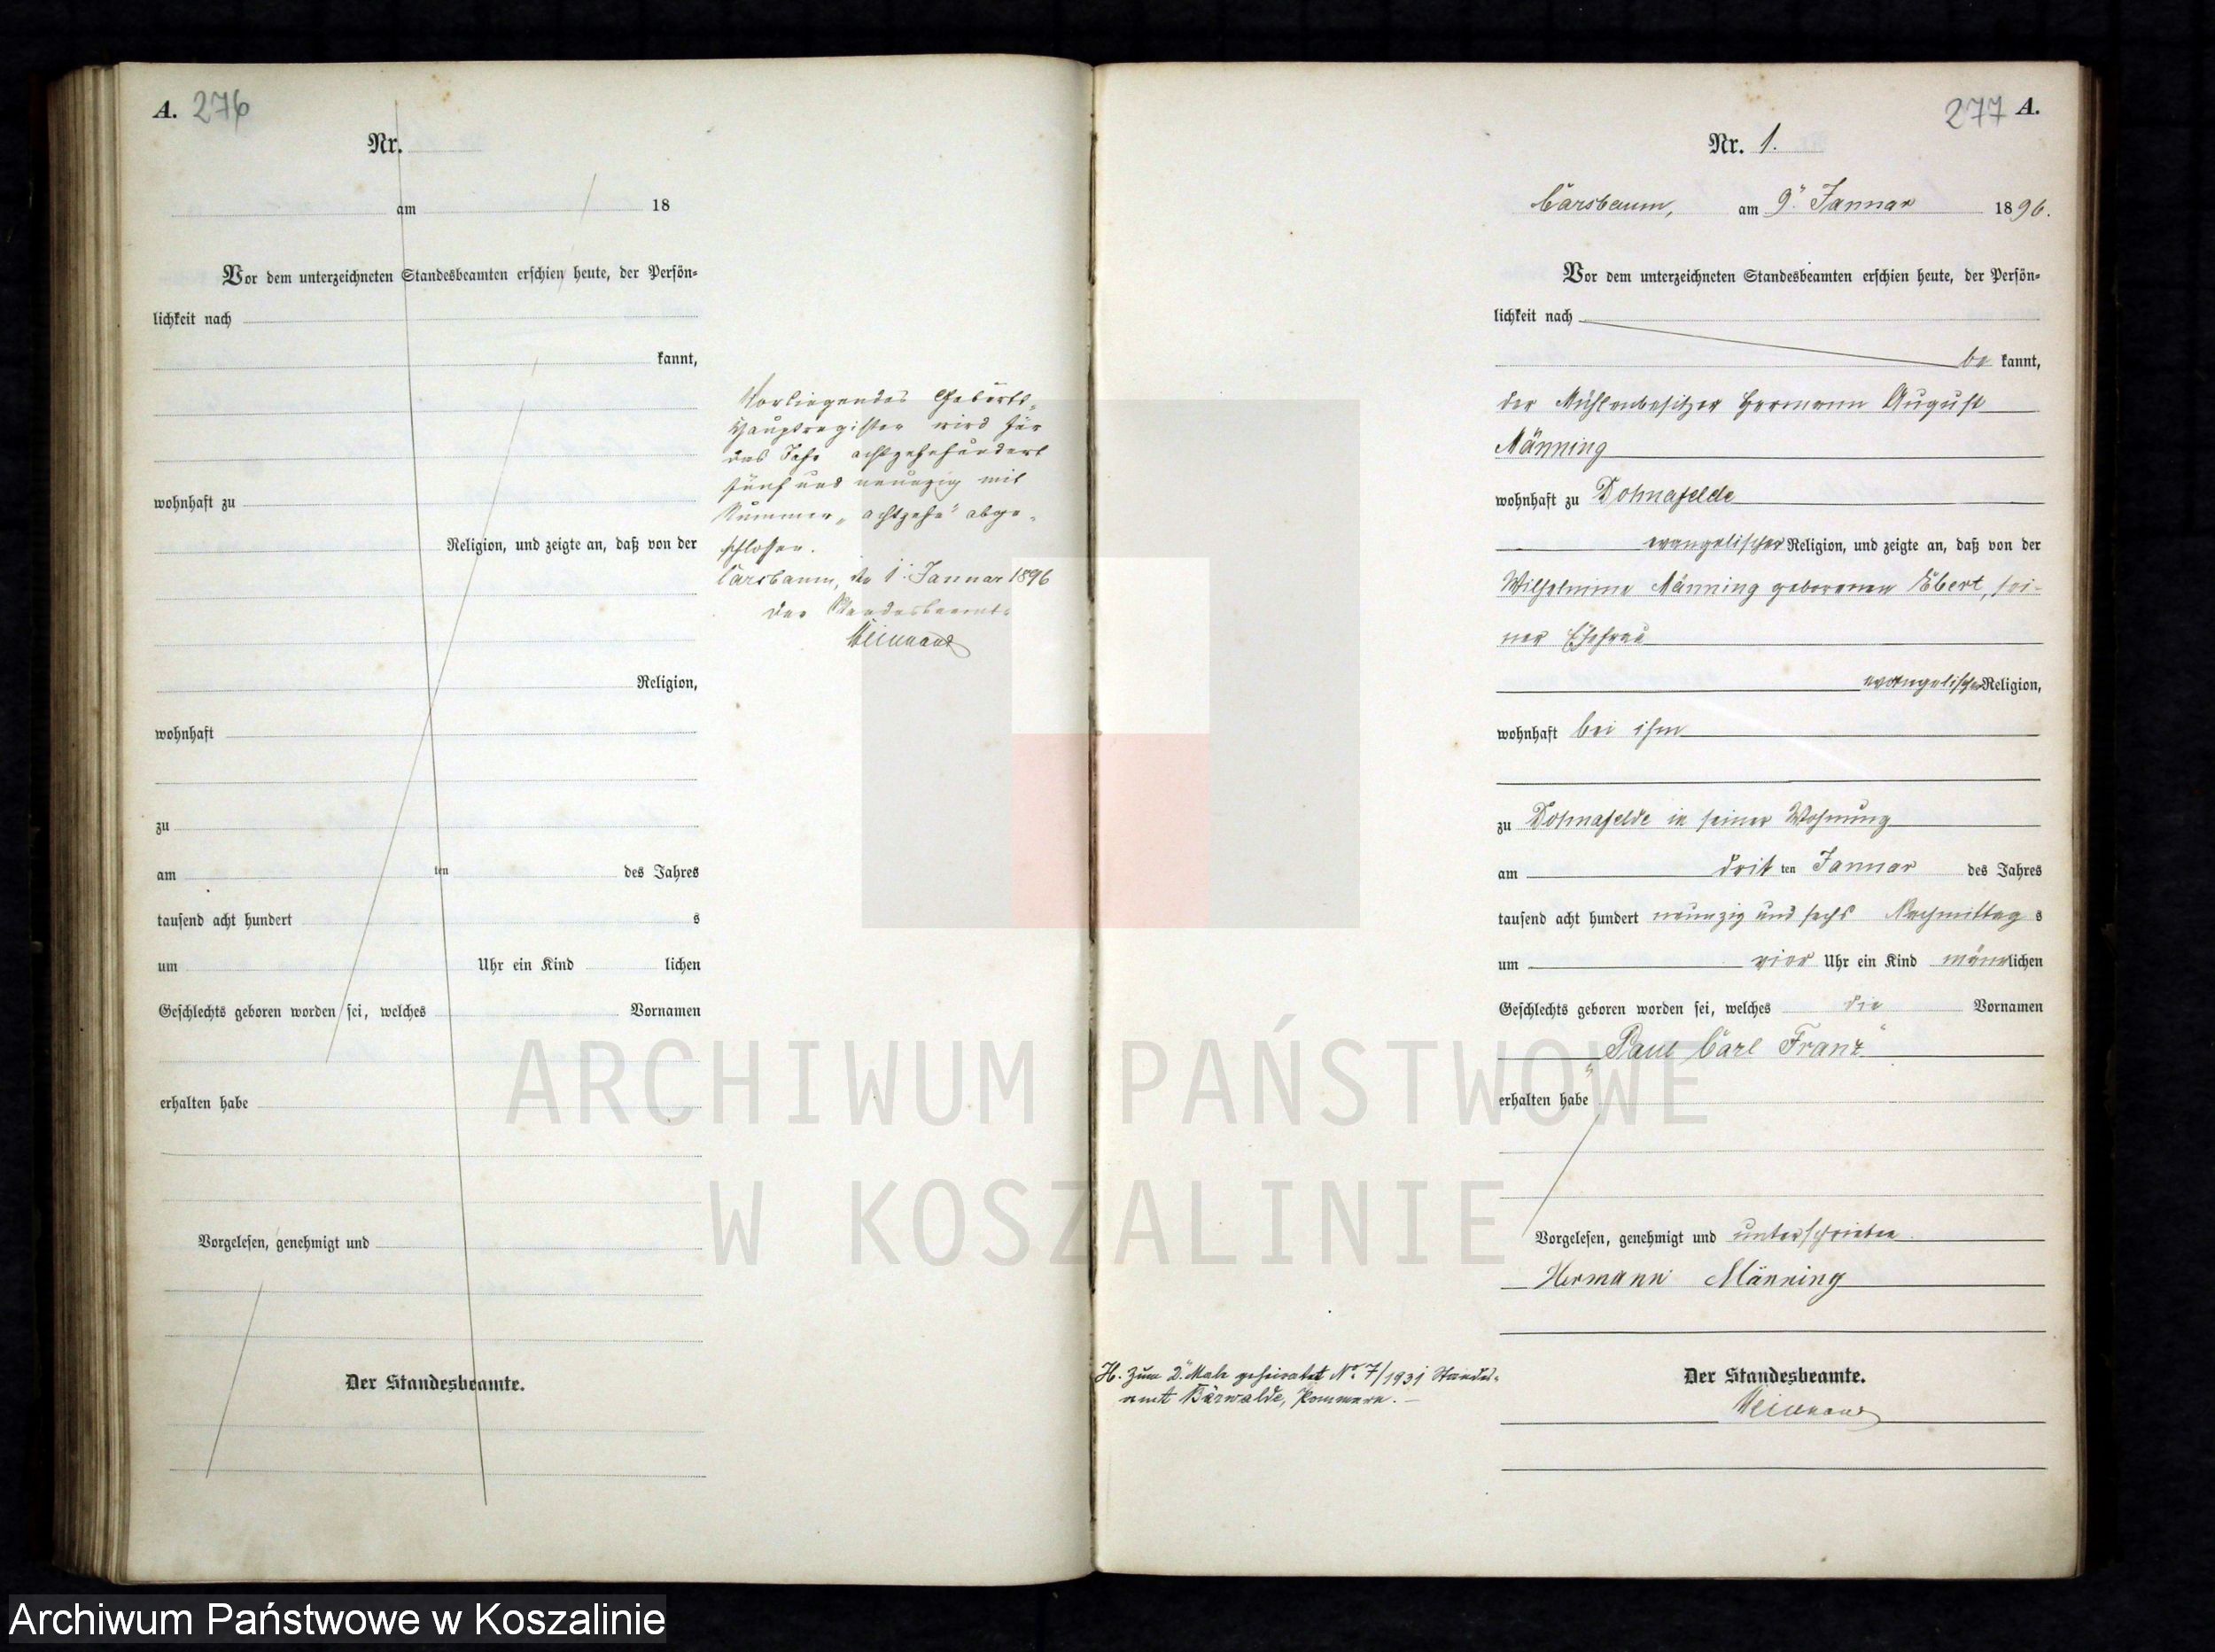 A. 276
Nr.
am 18
Vor dem unterzeichneten Standesbeamten erschien heute, der Persön-
lichkeit nach
kannt,
wohnhaft zu
Religion, und zeigte an, daß von der
Religion,
wohnhaft
zu
am ten des Jahres
tausend acht hundert s
um Uhr ein Kind lichen
Geschlechts geboren worden sei, welches Vornamen
erhalten habe
Vorgelesen, genehmigt und
Der Standesbeamte.
Vorliegendes Geburts-
Hauptregister wird für
das Jahr achtzehnhundert
fünf und neunzig mit
Nummer „achtzehn" abge-
schlossen.
Carsbaum, den 1. Januar 1896
Der Standesbeamte
277 A.
Nr. 1.
Carsbaum, am 9. Januar 1896.
Vor dem unterzeichneten Standesbeamten erschien heute, der Persön-
lichkeit nach
be kannt,
der Mühlenbesitzer Hermann August
Männing
wohnhaft zu Dohnafelde
evangelischer Religion, und zeigte an, daß von der
Wilhelmine Männing geborenen Ebert, sei-
ner Ehefrau
evangelischer Religion,
wohnhaft bei ihm
zu Dohnafelde in seiner Wohnung
am drit ten Januar des Jahres
tausend acht hundert neunzig und sechs Nachmittag s
um vier Uhr ein Kind männlichen
Geschlechts geboren worden sei, welches die Vornamen
„Paul Carl Franz"
erhalten habe
Vorgelesen, genehmigt und unterschrieben
Hermann Männing
Der Standesbeamte.
H. Zum 2. Male geheiratet No. 7/1931 Standes-
amt Bärwalde, Pommern.
ARCHIWUM PAŃSTWOWE
W KOSZALINIE
Archiwum Państwowe w Koszalinie